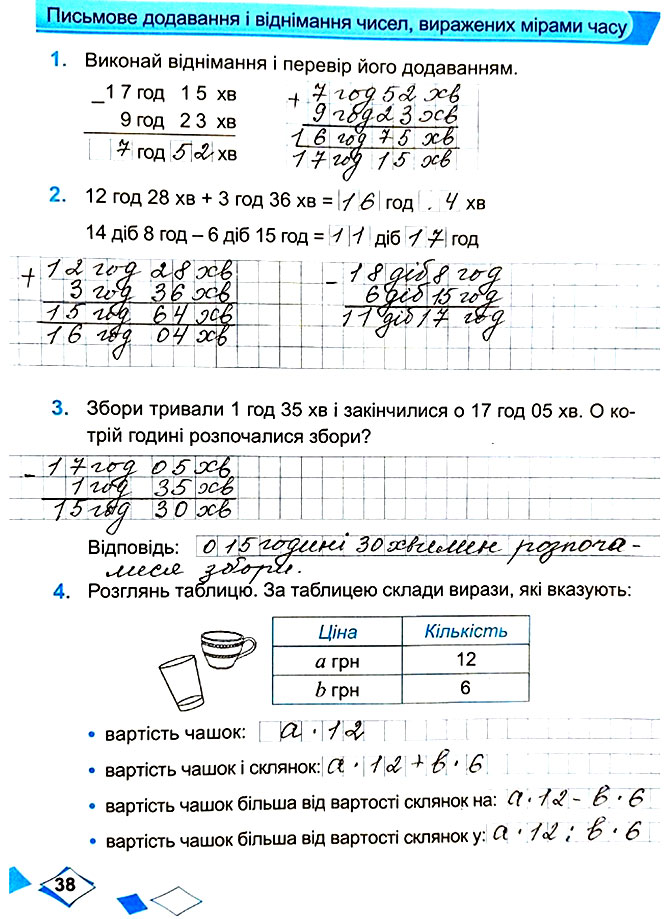 Письмове додавання і віднімання чисел, виражених мірами часу
1. Виконай віднімання і перевір його додаванням.
– 17 год 15 хв
9 год 23 хв
7 год 52 хв
+ 7 год 52 хв
9 год 23 хв
16 год 75 хв
17 год 15 хв
2. 12 год 28 хв + 3 год 36 хв = 16 год . 4 хв
14 діб 8 год – 6 діб 15 год = 11 діб 17 год
+ 12 год 28 хв
3 год 36 хв
15 год 64 хв
16 год 04 хв
– 18 діб 8 год
6 діб 15 год
11 діб 17 год
3. Збори тривали 1 год 35 хв і закінчилися о 17 год 05 хв. О ко-
трій годині розпочалися збори?
– 17 год 05 хв
1 год 35 хв
15 год 30 хв
Відповідь: о 15 годині 30 хвилин розпоча-
лися збори.
4. Розглянь таблицю. За таблицею склади вирази, які вказують:
Ціна Кількість
a грн 12
b грн 6
• вартість чашок: a · 12
• вартість чашок і склянок: a · 12 + b · 6
• вартість чашок більша від вартості склянок на: a · 12 – b · 6
• вартість чашок більша від вартості склянок у: a · 12 : b · 6
38